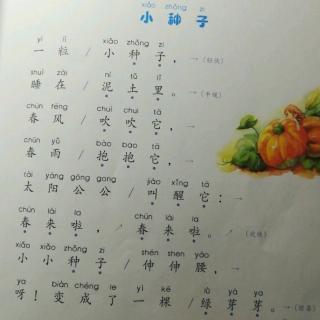 xiǎo zhǒng zi
小 种 子
yí lì xiǎo zhǒng zi
一 粒 / 小 种 子, → (轻快)
shuì zài ní tǔ lǐ
睡 在 / 泥 土 里 。 → (平缓)
chūn fēng chuī chuī tā
春 风 / 吹 吹 它, →
chūn yǔ bào bao tā
春 雨 / 抱 抱 它, →
tài yáng gōng gong jiào xǐng tā
太 阳 公 公 / 叫 醒 它 : →
chūn lái la chūn lái la
春 来 啦 , 春 来 啦 。 → (欢快)
xiǎo xiǎo zhǒng zi shēn shen yāo
小 小 种 子 / 伸 伸 腰, →
ya biàn chéng le yì kē lǜ yá ya
呀! 变 成 了 一 棵 / 绿 芽 芽 。 →